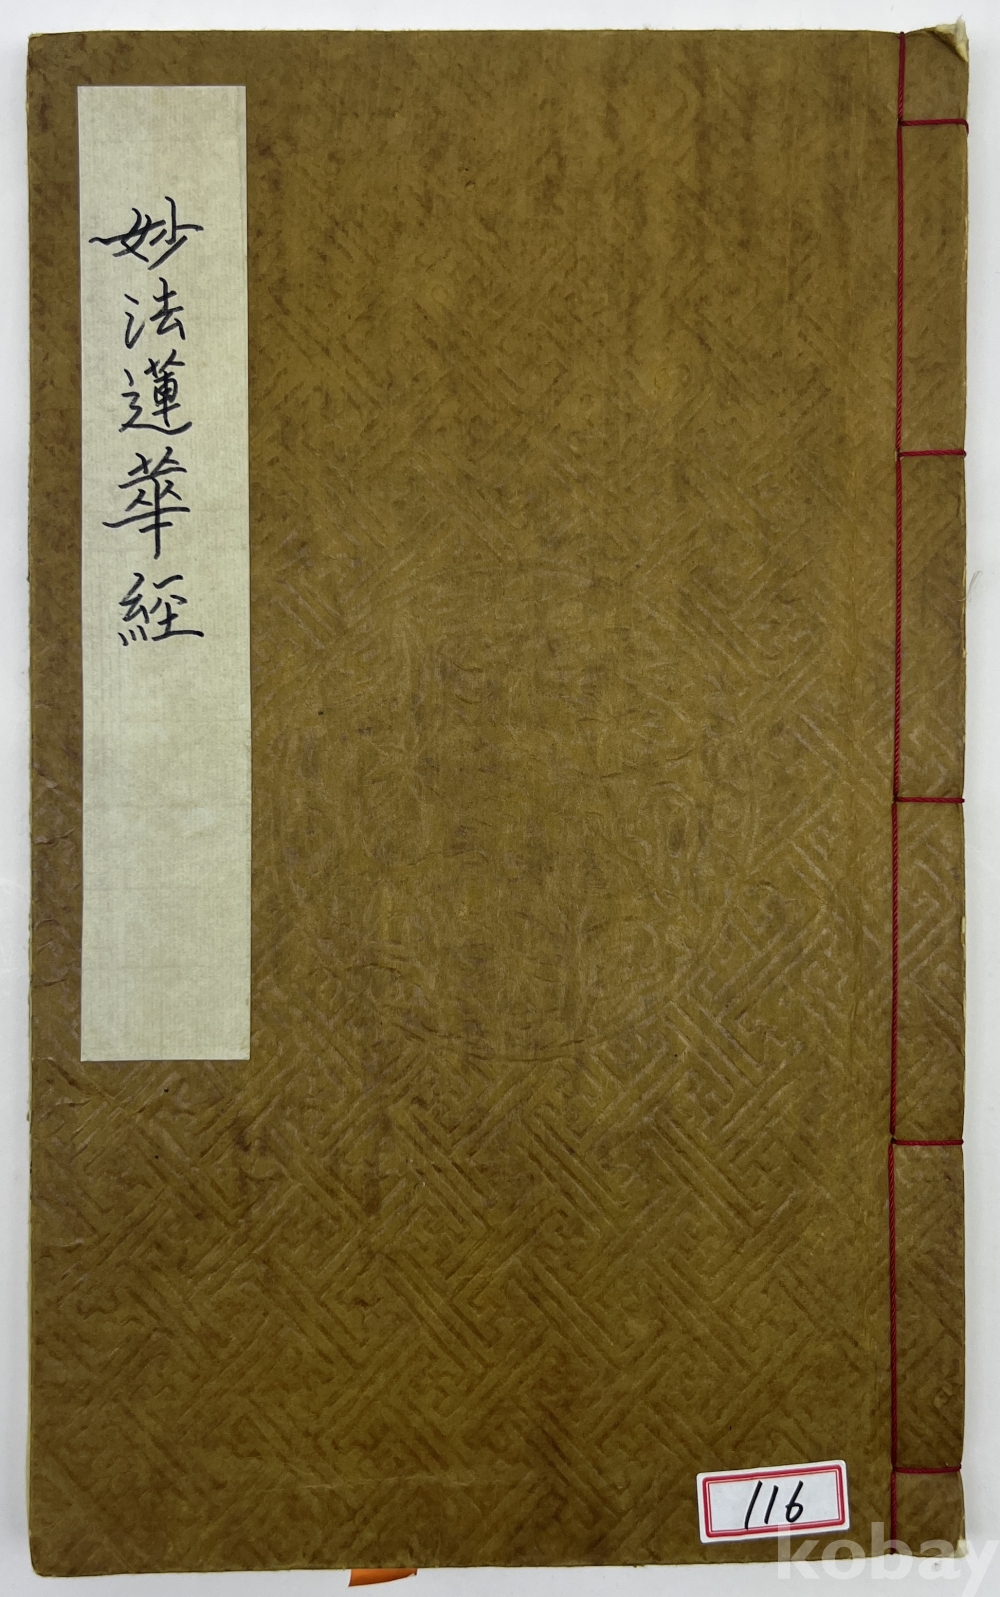 妙法蓮華經
116
kobay